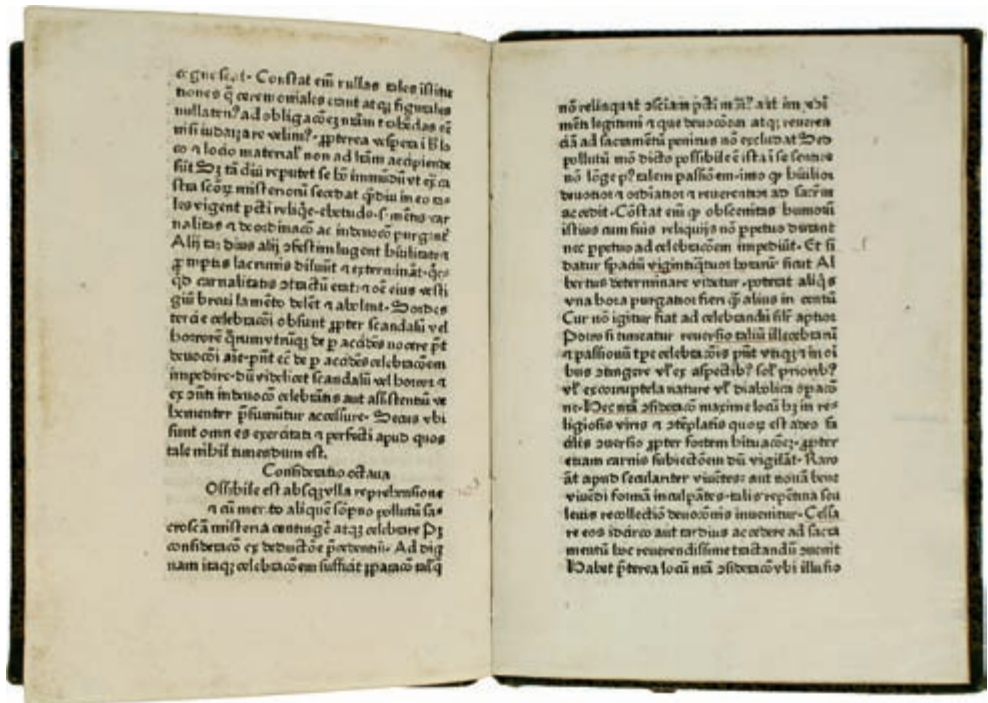 Constat em̄ nullas tales istitu
tiones q̄ ceremoniales erant atqʒ figurales
nisi iudaizare velim? ꝓpterea vespera
co ⁊ locio material̕ non ad lr̄am accipiende
sūt Sʒ tā diu reputet se
stra misterioꝝ secedat qᷓdiu in eo ta
les vigent pcti
nalitas ⁊ deordinacō ac indeuocō purgent̕
Alij dius alij ꝯfestim lugent
ꝓmptus lacrimis diluūt ⁊ extermināt
qd̕ carnalitatis ꝯtractū erat ⁊ oē eius vesti
giū breui lamēto delēt ⁊ abolent Sordes
tercie celebracōi obsunt ꝓpter scandalū vel
horrorē qͦrum vtrūqʒ de p accīdēs nocere pn̄t
deuocōi de p accidēs celebracōem
impedire dū videlicet scandalū vel horror ⁊
ex indeuocō celebrātis aut assistentiū ve
hementer p̄sumūtur accessure Secus vbi
sunt omnes exercitati ⁊ perfecti apud quos
tale nihil timendum est.
Consideratio octaua
Ossibile est absqʒ vlla reprehensione
⁊ cū merito aliquē sōpno pollutū sa
croscā misteria contingē atqʒ celebrare Pʒ
consideracō ex deductōe p̄cedentiū Ad dig
nam itaqʒ celebracōem sufficit p̄paracō talᷓ
nō relinquat ꝯsciam pcti
mēti legitimi ⁊ que deuocōem atqʒ reueren
ciā ad sacramētū penitus nō excludat Sed
pollutū mō dicto possibile ē ista ī se sentire
nō lōge p? talem passiōem imo qp̄ hūilior
deuotior ⁊ ordīatior ⁊ reuerentior ad sacr̄m
accedit Cōstat em̄ qp̄ obscenitas humorū
istius cum suis reliquijs nō ꝑpetuo durant
nec ꝑpetuo ad celebracōem impediūt Et si
datur spaciū vigintiqͣtuor horarū sicut Al
bertus determinare videtur poterat aliqͥs
vna hora purgatior fieri qᷓ alius in centū
Cur nō igitur fiat ad celebrandū silr̄ aptior
Porro si timeatur reuersio taliū illecebrarū
⁊ passionū tp̄e celebracōis pn̄t vtiqʒ ⁊ in oī
bus ꝯtingere vl̕ ex aspectib? sol̕ priorib?
vl̕ ex corruptela nature vl̕ diabolica opacō
ne Hec nrā ꝯsideracō maxime locū hʒ in re
ligiosis viris ⁊ ꝯtēplatis quoꝝ est adeo fa
cilis ꝯuersio ꝓpter fortem hituacōeʒ ꝓpter
etiam carnis subiectōem dū vigilāt Raro
āt apud seculariter viuētes aut nouā bene
viuēdi formā inculpātes talis repētina seu
leuis recollectiō deuocōnis inuenitur Cessa
re eos idcirco aut tardius accedere ad sacra
mentū hoc reuerendissime tractandū ꝯuenit
Habet p̄terea locū nrā ꝯsideracō vbi illusio